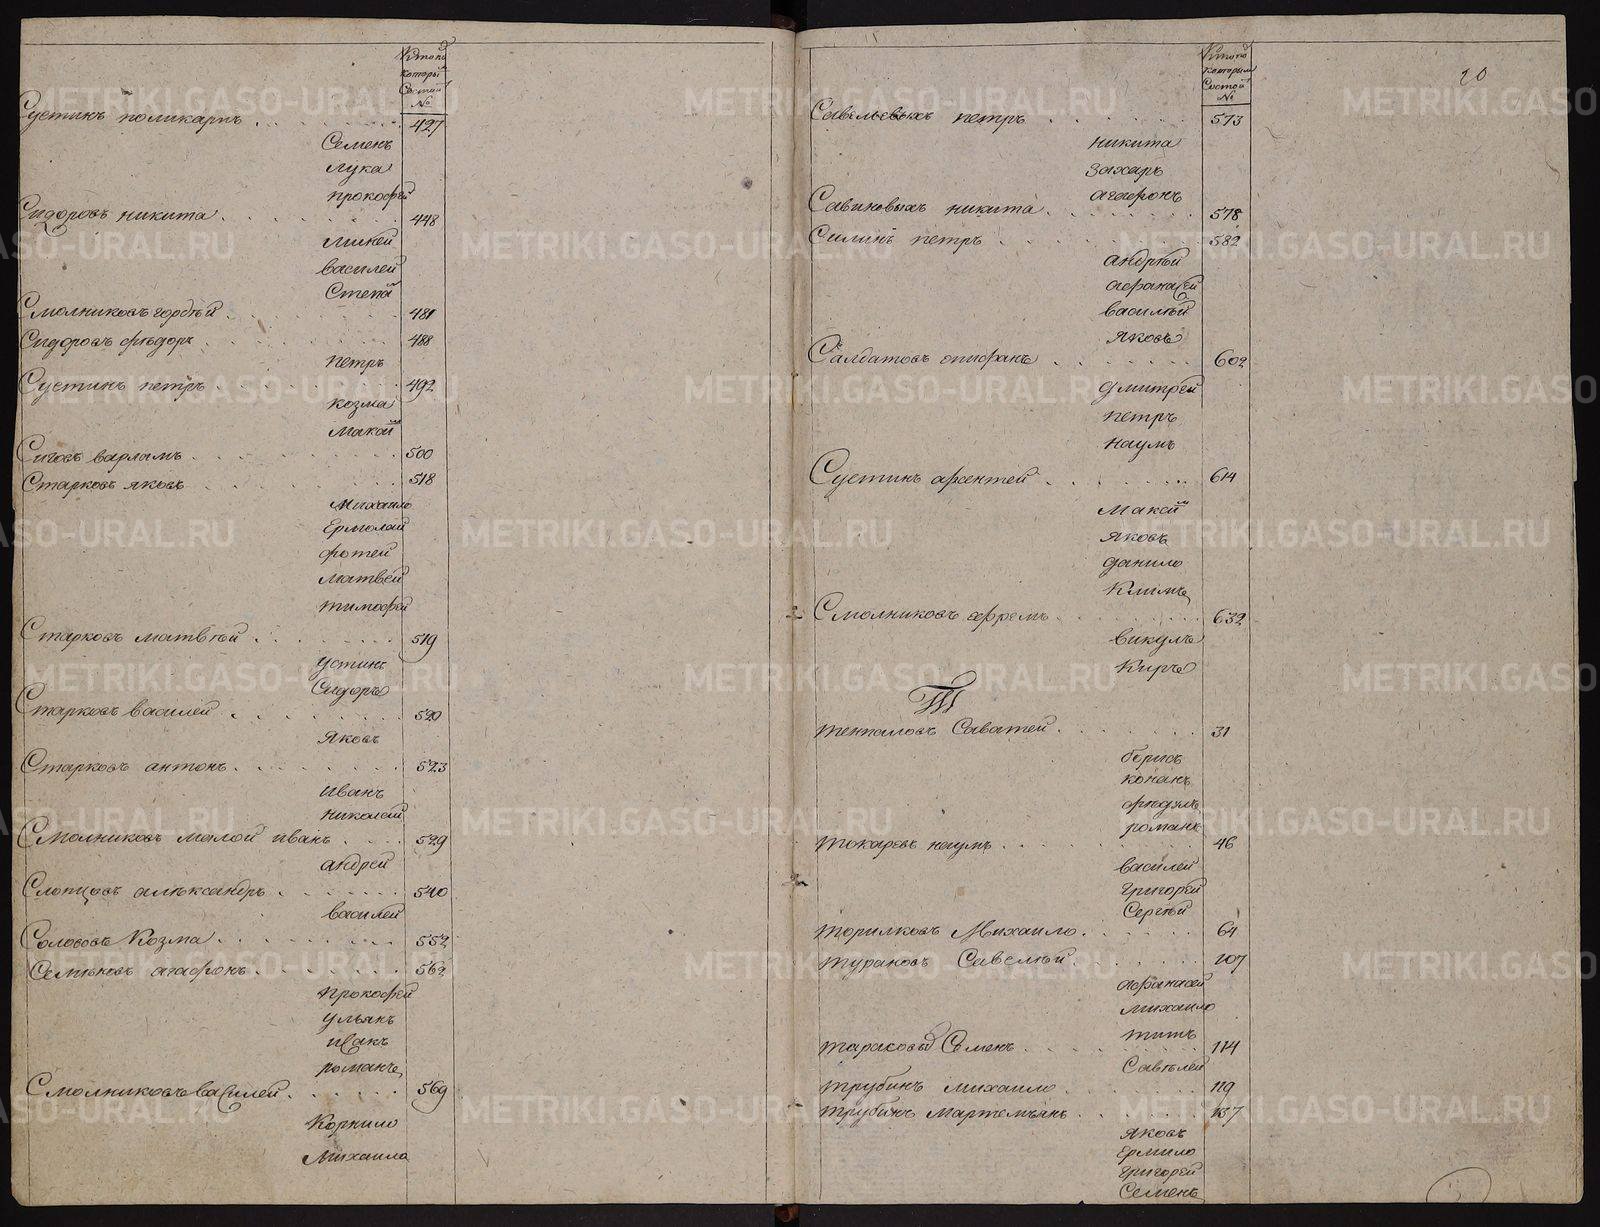 Которы
Состои
№
Сустинъ поликарпъ 427
Семенъ
лука
прокофей
Сидоровъ никита 448
михей
василей
Степа
Смолниковъ гордѣй 481
Сидоровъ фѣдоръ 488
петръ
Сустинъ петръ 492
козма
Макси
Сиговъ варламъ 500
Старковъ яковъ 518
Михаило
Ермолаи
фотей
матвей
тимофей
Старковъ матвѣй 519
устинъ
Сидоръ
Старковъ василей 520
Яковъ
Старковъ антонъ 523
иванъ
николай
Смолниковъ малой иванъ 529
андрей
Слопцовъ алѣксандръ 540
василей
Козма 552
агафонъ 562
прокофей
ульянъ
исакъ
романъ
Смолниковъ василей 569
Корнило
Михаила
20
которым
Состои
№
Савельевыхъ петръ 573
никита
захаръ
агафонъ
Савиновыхъ никита 578
Силинъ петръ 582
андрѣй
афанасей
василѣй
яковъ
Салдатовъ епифанъ 602
дмитрей
петръ
наумъ
Сустинъ 614
Макси
яковъ
данило
Климъ
Смолниковъ 632
викулъ
Киръ
Т
Саватей 31
борисъ
конанъ
романъ
токаревъ наумъ 46
василей
григорей
Сергѣй
торилковъ Михаило 64
тураковъ Савелѣй 107
афанасей
михаило
титъ
Семенъ 114
Савѣлей
трубинъ михаило 119
трубинъ мартемъянъ 137
яковъ
Ермило
григорей
Семенъ
METRIKI.GASO-URAL.RU